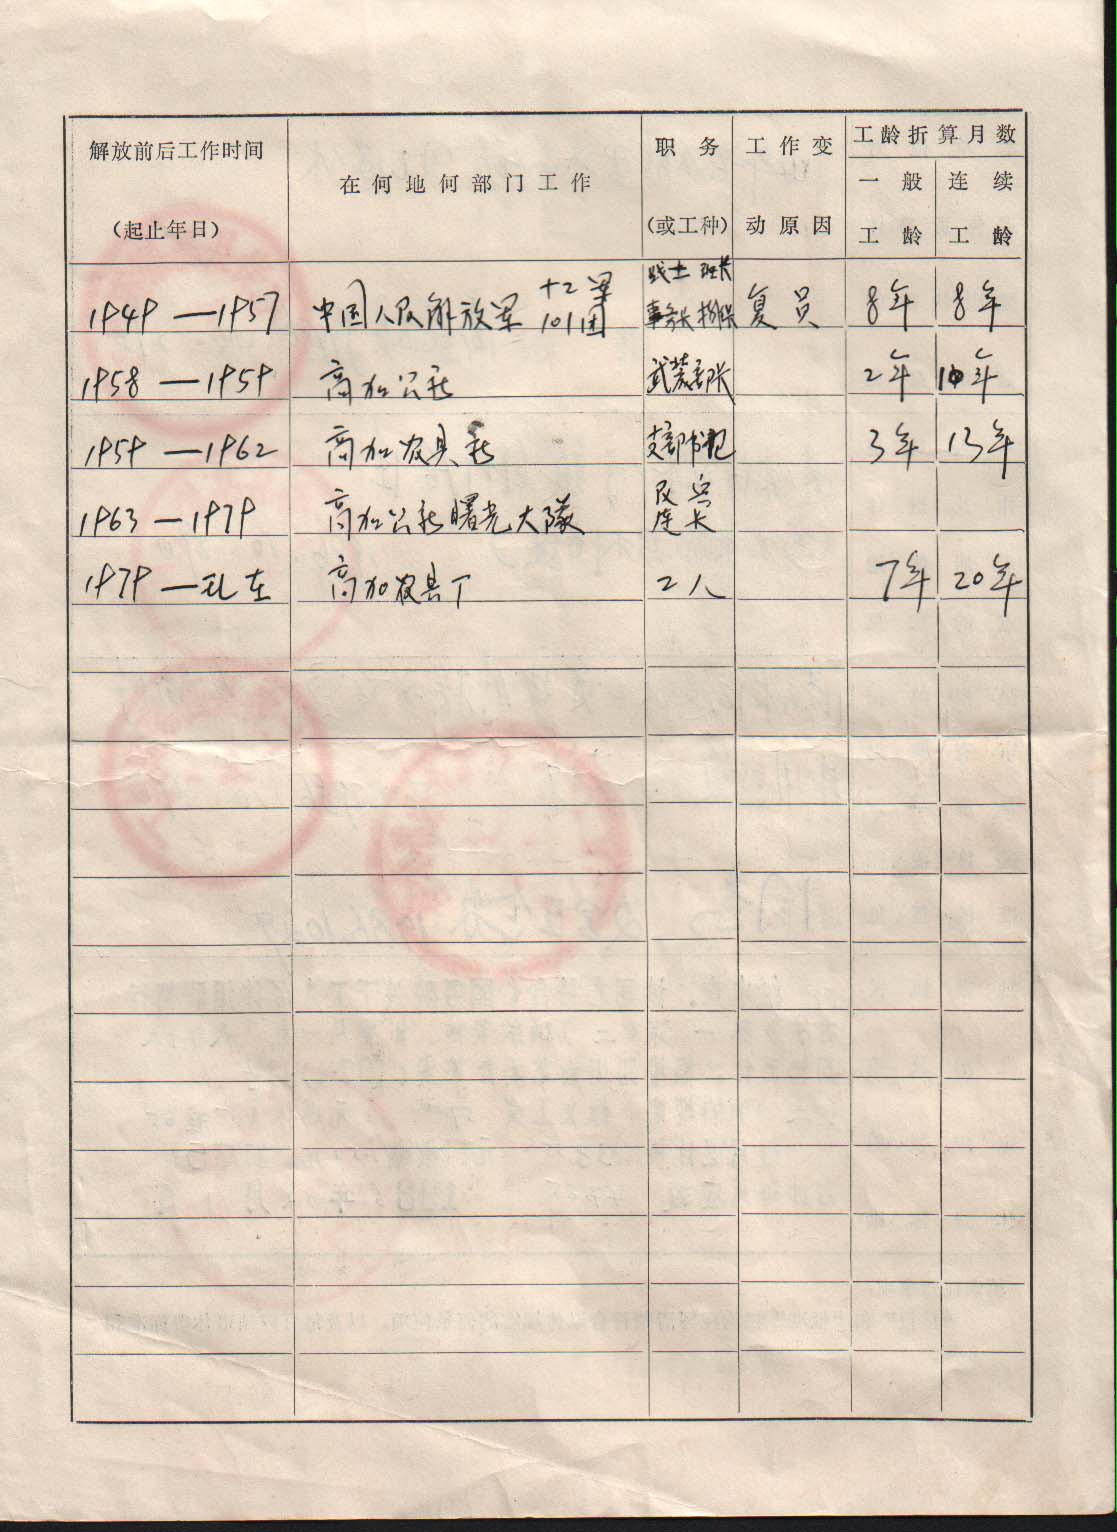 解放前后工作时间
（起止年日）
在何地何部门工作
职务
（或工种）
工作变
动原因
工龄折算月数
一般
工龄
连续
工龄
1949—1957 中国人民解放军 十二军 101团 战士 班长 复员 8年 8年
1958—1959 高加公社 武装部长 2年 10年
1959—1962 高加农具社 支部书记 3年 13年
1963—1979 高加公社曙光大隊 民兵连长
1979—现在 高加农具厂 工人 7年 20年